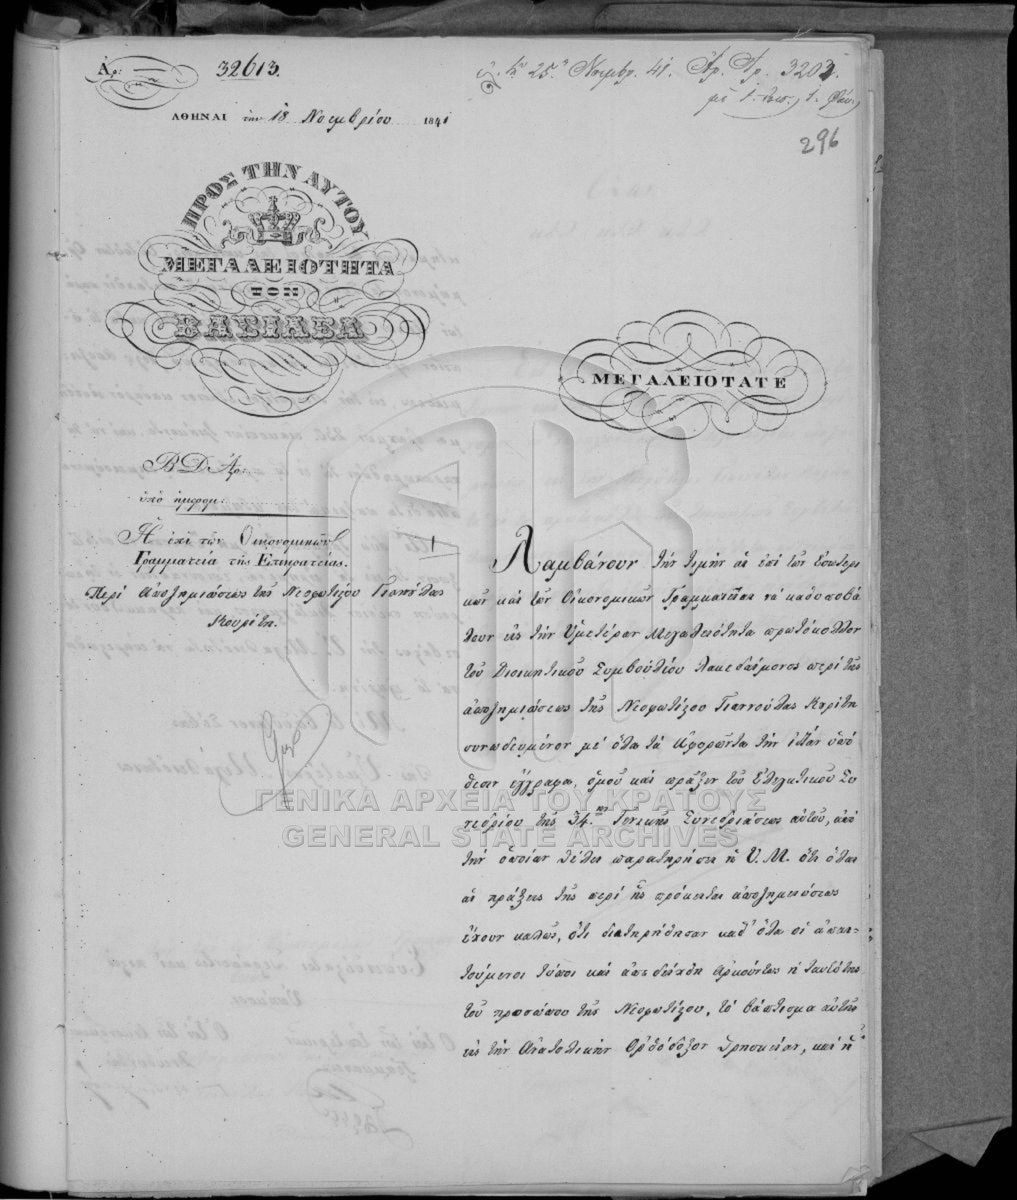 Ἀρ: 32613.
ἐλ. τὴν 25. Νοεμβρ. 41. Ἀρ. Πρ. 3203.
μὲ 1.
296
ΑΘΗΝΑΙ τὴν 18 Νοεμβρίου 1841
ΠΡΟΣ ΤΗΝ ΑΥΤΟΥ
ΜΕΓΑΛΕΙΟΤΗΤΑ
ΤΟΝ
ΒΑΣΙΛΕΑ
ΜΕΓΑΛΕΙΟΤΑΤΕ
Β Δ Ἀρ:
ὑπὸ ἡμερομ:
Ἡ ἐπὶ τῶν Οἰκονομικῶν
Γραμματεία τῆς Ἐπικρατείας.
Περὶ ἀποζημιώσεως τῆς Νεοφωτίστου Γιαννούλας
Κουρίτη.
Λαμβάνουν τὴν τιμὴν αἱ ἐπὶ τῶν Ἐσωτερι
κῶν καὶ τῶν Οἰκονομικῶν Γραμματεῖαι νὰ καθυποβά
λουν εἰς τὴν Ὑμετέραν Μεγαλειότητα πρωτόκολλον
τοῦ Διοικητικοῦ Συμβουλίου Λακεδαίμονος περὶ τῆς
ἀποζημιώσεως τῆς Νεοφωτίστου Γιαννούλας Κυρίτη
συνωδευμένον μὲ ὅλα τὰ ἀφορῶντα τὴν ὑπό
θεσιν ἔγγραφα, ὁμοῦ καὶ πρᾶξιν τοῦ Ἐλεγκτικοῦ Συ
νεδρίου τῆς 34.ης Γενικῆς Συνεδριάσεως αὐτοῦ, ἀπὸ
τὴν ὁποίαν θέλει παρατηρήσει ἡ Υ. Μ. ὅτι ὅλαι
αἱ πράξεις τῆς περὶ ἧς πρόκειται ἀποζημιώσεως
ἔχουν καλῶς, ὅτι διετηρήθησαν καθ' ὅλα οἱ ἀπαι-
τούμενοι τύποι καὶ ἀπεδείχθη ἀρκούντως ἡ ταυτότης
τοῦ προσώπου τῆς Νεοφωτίστου, τὸ βάπτισμα αὐτῆς
εἰς τὴν Ἀνατολικὴν Ὀρθόδοξον Θρησκείαν, καὶ ἡ
ΓΕΝΙΚΑ ΑΡΧΕΙΑ ΤΟΥ ΚΡΑΤΟΥΣ
GENERAL STATE ARCHIVES